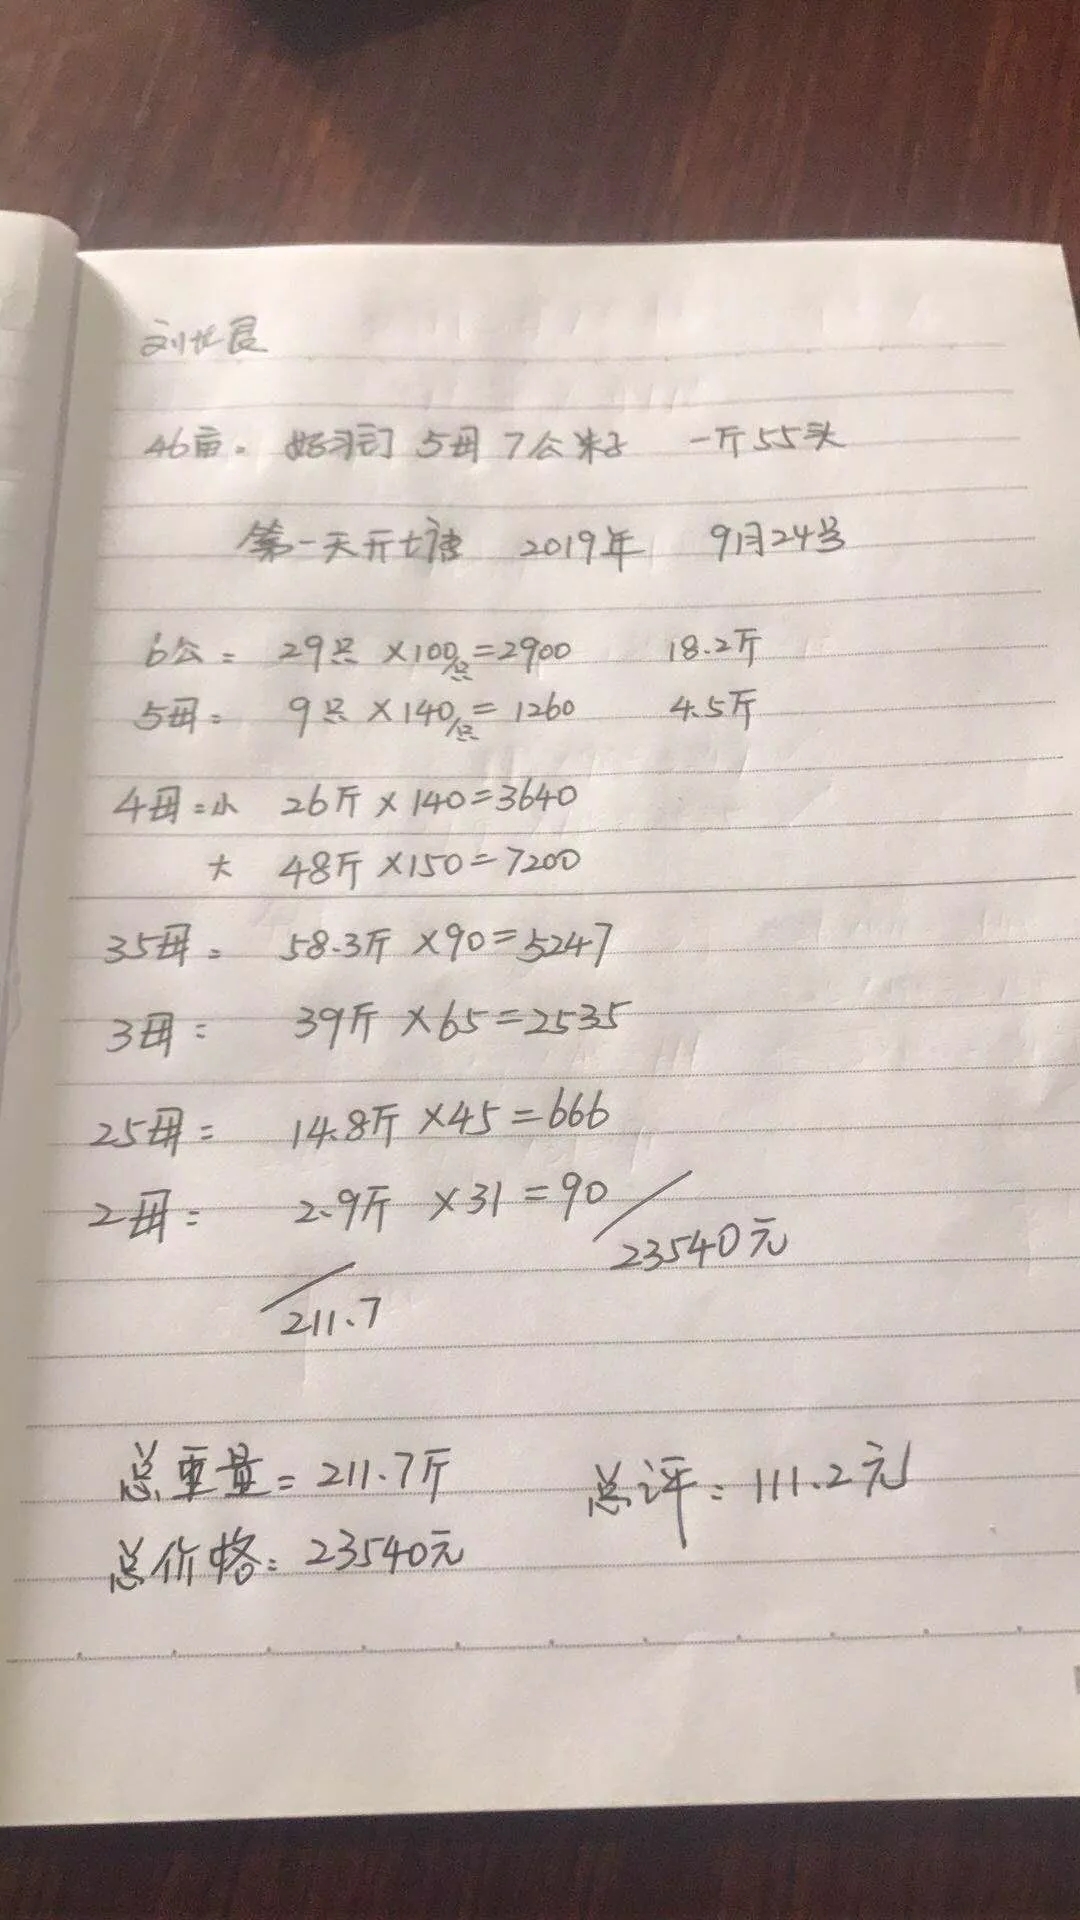 46亩。 5母 7公 一斤55头
第一天开塘 2019年 9月24号
6公= 29只 ×100/只=2900 18.2斤
5母= 9只 ×140/只= 1260 4.5斤
4母=小 26斤×140=3640
大 48斤×150=7200
35母= 58.3斤×90=5247
3母= 39斤×65=2535
25母= 14.8斤×45=666
2母= 2.9斤 ×31=90
23540元
211.7
总重量=211.7斤 总评=111.2元
总价格=23540元